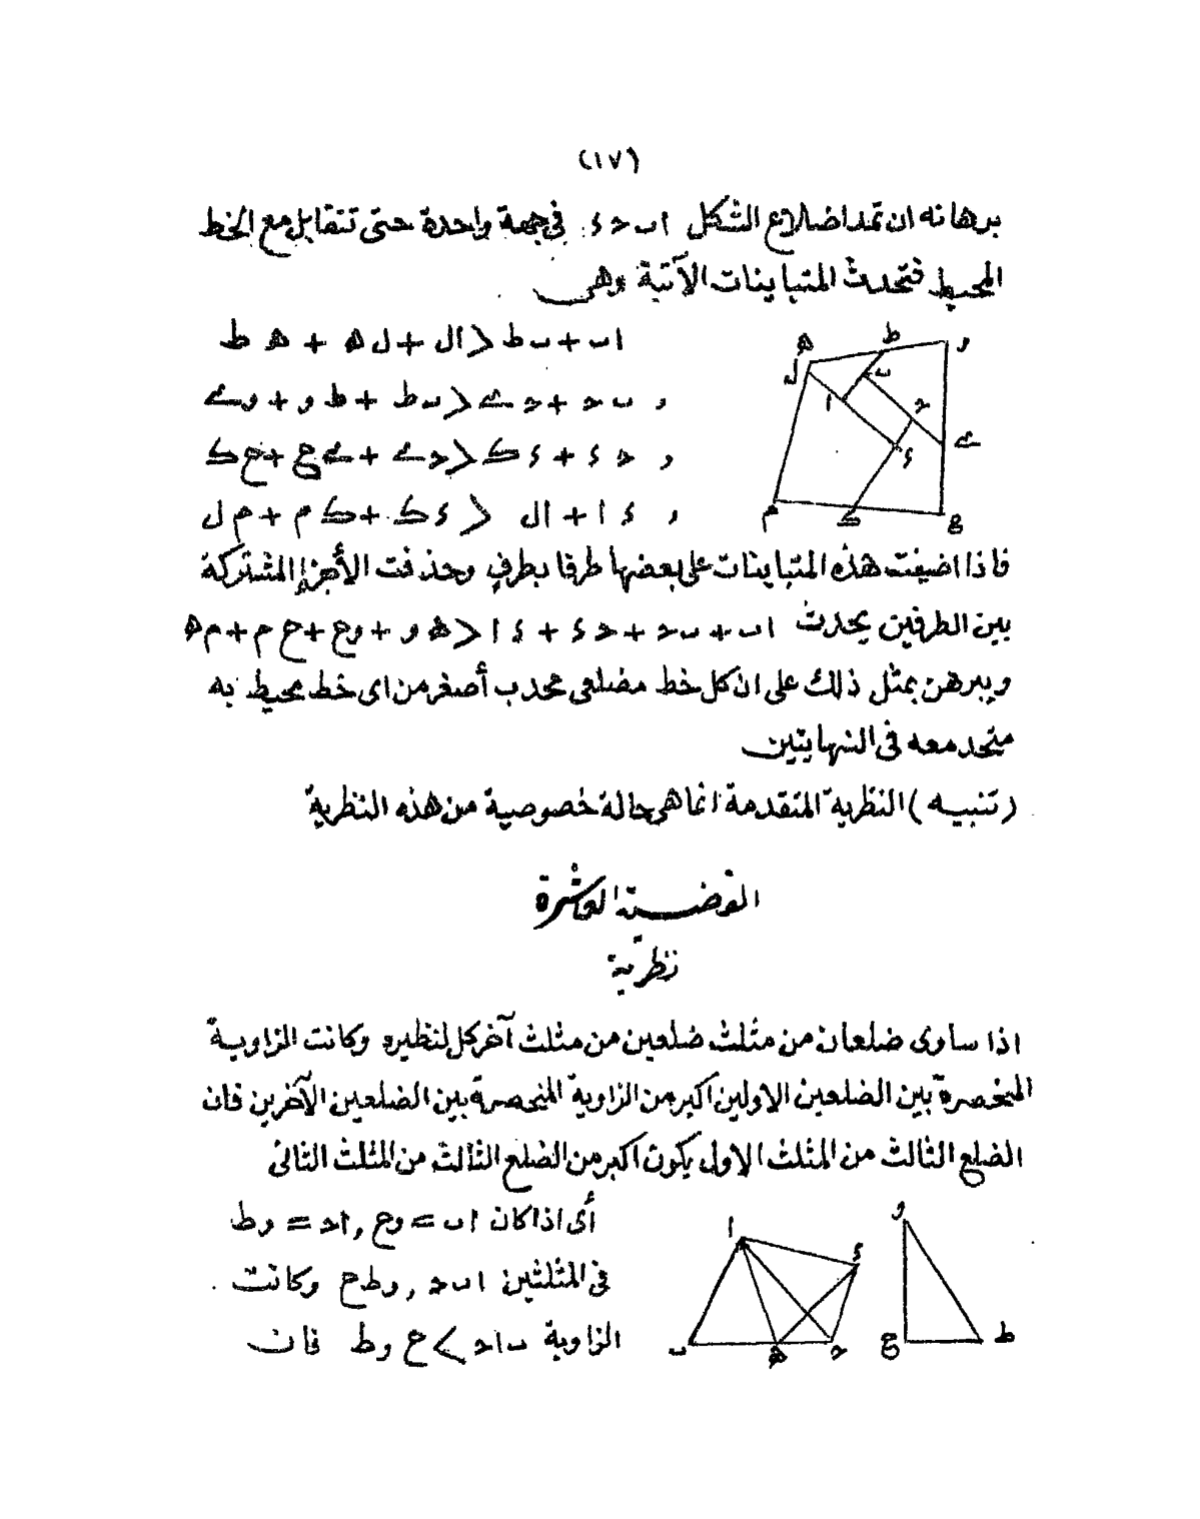 (١٧)
برهانه ان تمد اضلاع الشكل ا ٮ ح ء في جهة واحدة حتى تتقابل مع الخط
المحيط فتحدث المتباينات الآتية وهى
اٮ + ٮط < ال + ل ه + ه ط
و ٮ ح + ح ے < ٮط + ط و + وے
و ح ء + ء ك < حے + ے ع + ع ك
و ء ا + ال < ء ك + ك م + م ل
ه ط و ل ٮ ا ح ے ء م ك ع
فاذا اضيفت هذه المتباينات على بعضها طرفا بطرف وحذفت الأجزا المشتركة
بين الطرفين يحدث اٮ + ٮح + حء + ء ا < ه و + وع + ع م + م ه
ويبرهن بمثل ذلك على ان كل خط مضلعى محدب أصغر من اى خط محيط به
متحد معه فى النهايتين
(تنبيه) النظرية المتقدمة انما هى حالة خصوصية من هذه النظرية
القضية العاشرة
نظرية
اذا ساوى ضلعان من مثلث ضلعين من مثلث آخر كل لنظيره وكانت الزاوية
المنحصرة بين الضلعين الاولين اكبر من الزاوية المنحصرة بين الضلعين الآخرين فان
الضلع الثالث من المثلث الاول يكون اكبر من الضلع الثالث من المثلث الثانى
أى اذا كان اٮ = وع , اح = وط
فى المثلثين اٮح , وطع وكانت
الزاوية ٮاح > ع وط فان
ا ء ٮ ه ح و ع ط